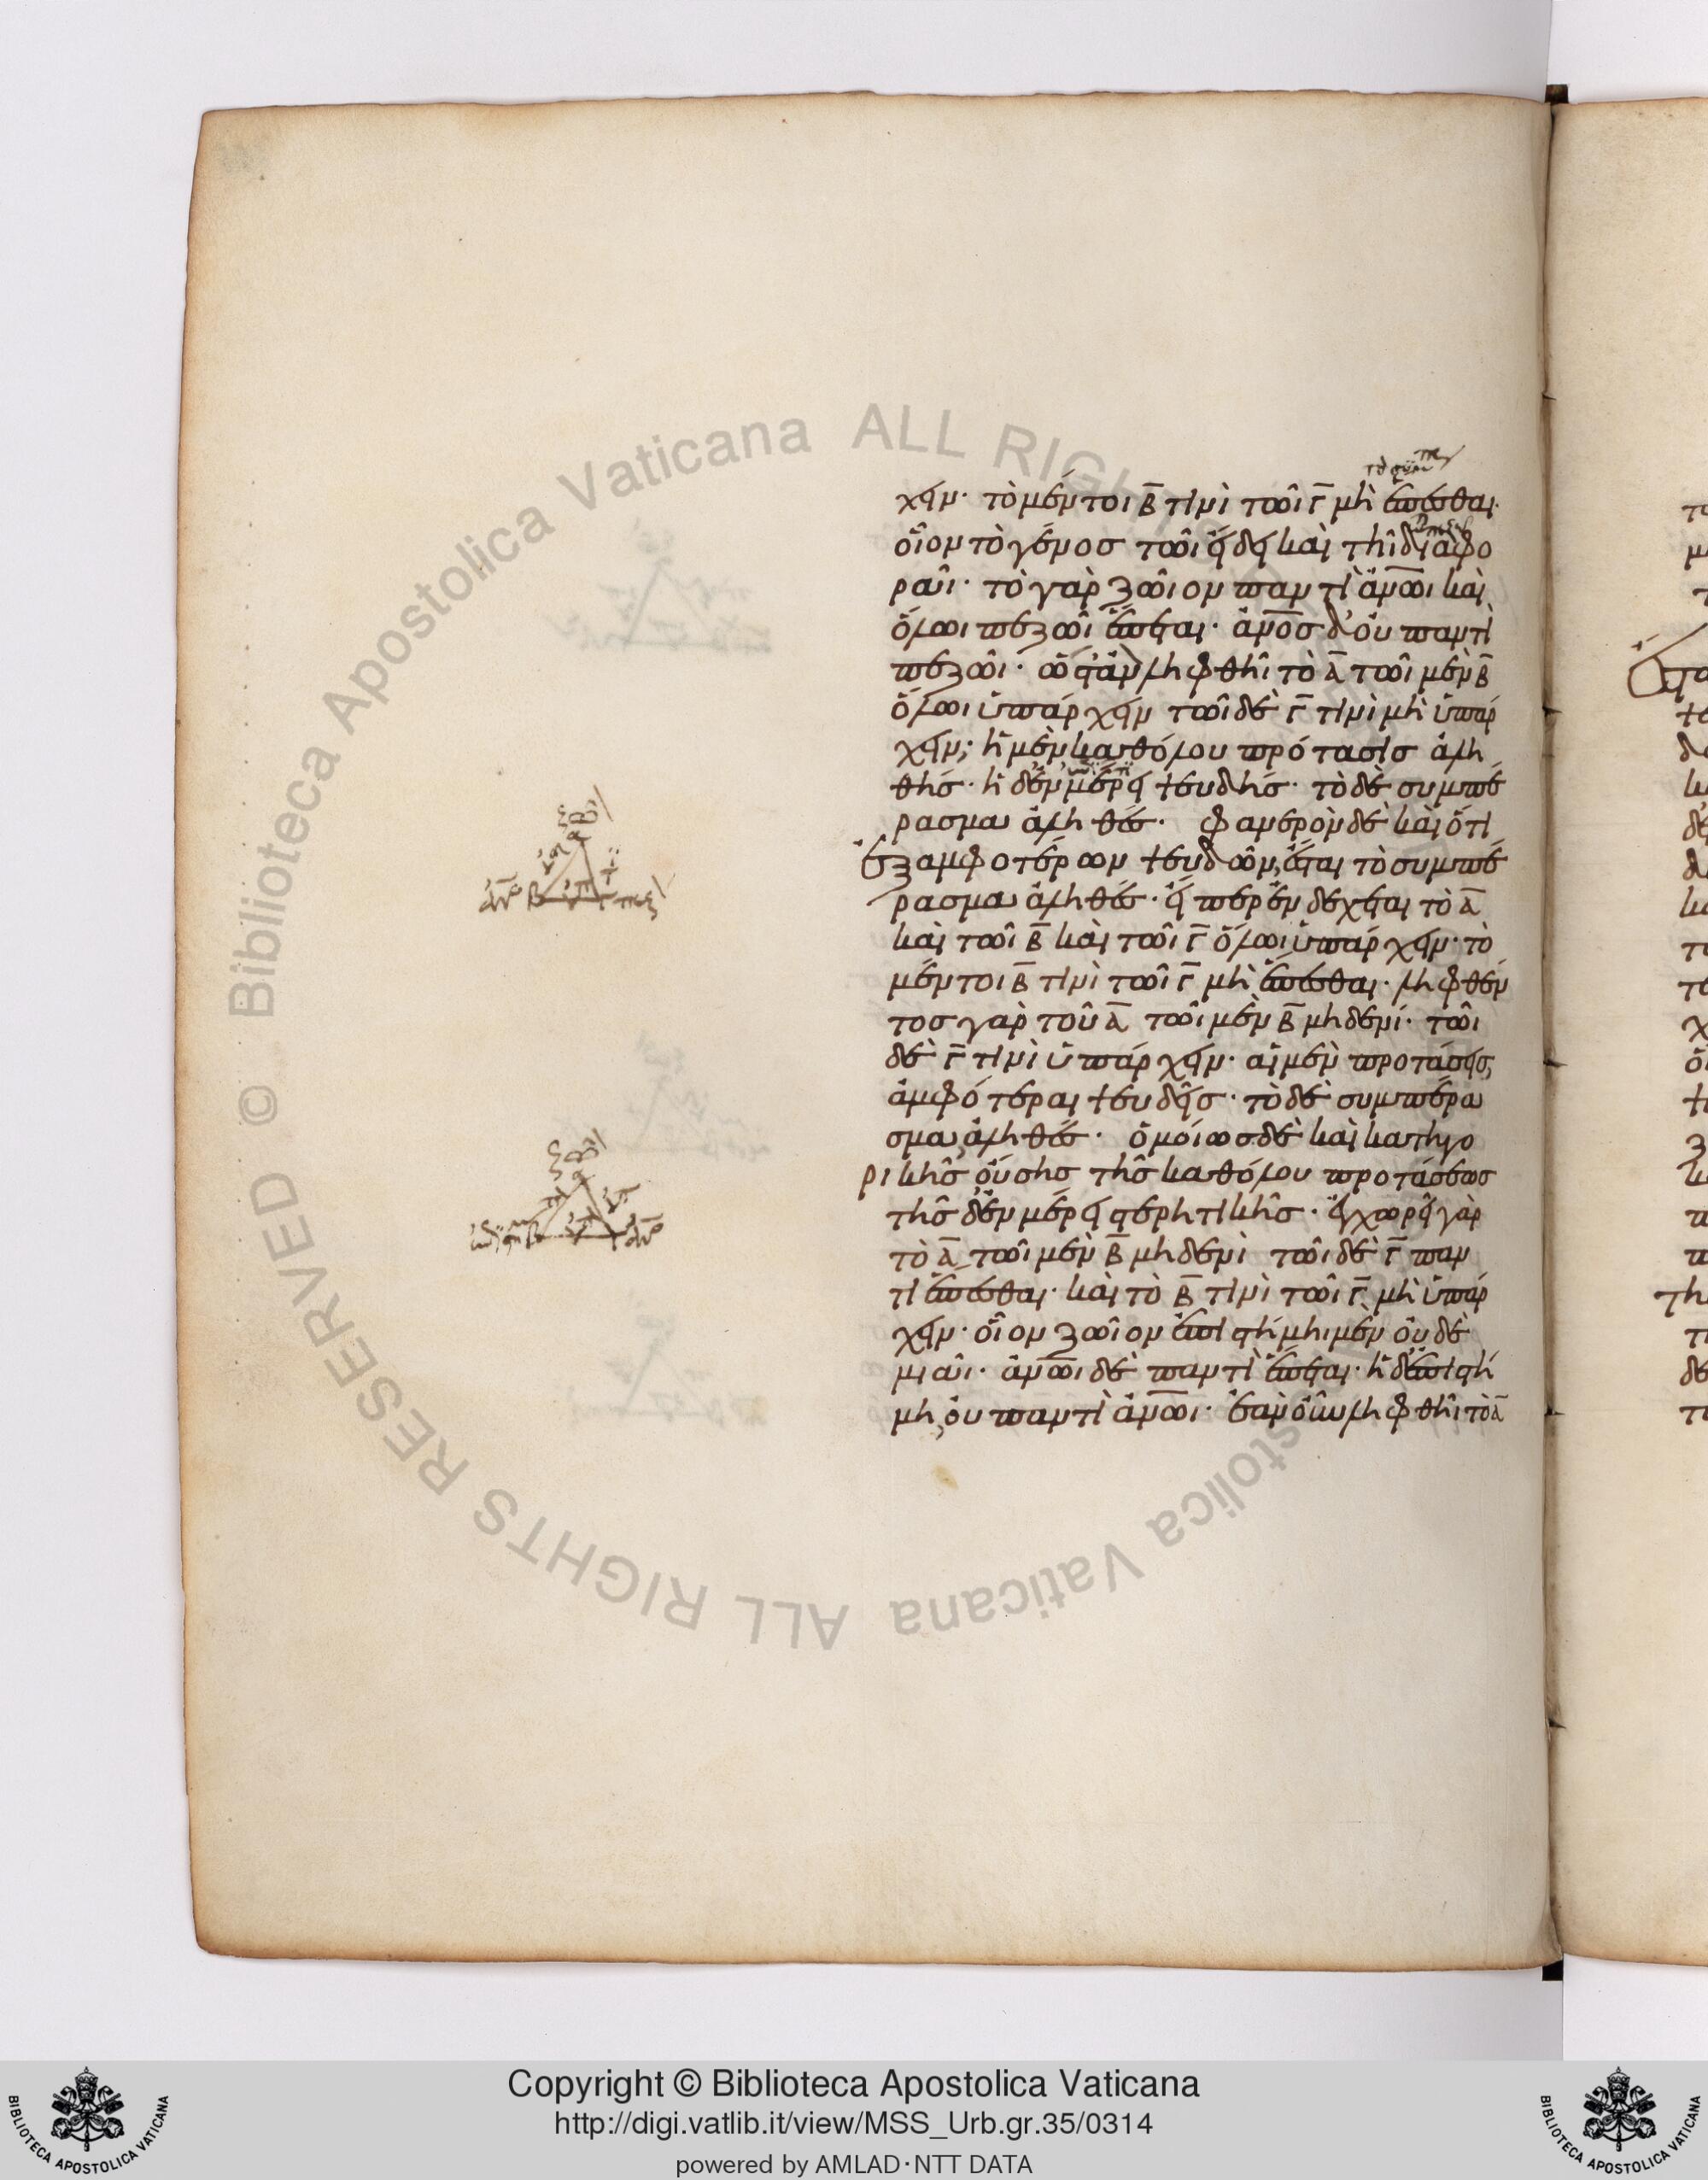 χειν· τὸ μέντοι Β̅ τινὶ τῶι Γ̅ μὴ ἕπεσθαι·
οἷον τὸ γένος τῶι εἴδει καὶ τῆι διαφο
ρᾶι· τὸ γὰρ ζῶιον παντὶ ἀν̅ω̅ι καὶ
ὅλωι πεζῶι ἕπεται· ἄν̅ο̅ς δ' οὐ παντὶ
πεζῶι· ὥστ' ἂν ληφθῆι τὸ Α̅ τῶι μὲν Β̅
ὅλωι ὑπάρχειν τῶι δὲ Γ̅ τινὶ μὴ ὑπάρ
χειν, ἡ μὲν καθόλου πρότασις ἀλη
θής· ἡ δ' ἐν μέρει ψευδής· τὸ δὲ συμπέ
ρασμα ἀληθές· φανερὸν δὲ καὶ ὅτι
ἐξ ἀμφοτέρων ψευδῶν, ἔσται τὸ συμπέ
ρασμα ἀληθές· εἴπερ ἐνδέχεται τὸ Α̅
καὶ τῶι Β̅ καὶ τῶι Γ̅ ὅλωι ὑπάρχειν· τὸ
μέντοι Β̅ τινὶ τῶι Γ̅ μὴ ἕπεσθαι· ληφθέν
τος γὰρ τοῦ Α̅ τῶι μὲν Β̅ μηδενί· τῶι
δὲ Γ̅ τινὶ ὑπάρχειν· αἱ μὲν προτάσεις,
ἀμφότεραι ψευδεῖς· τὸ δὲ συμπέρα
σμα, ἀληθές· ὁμοίως δὲ καὶ κατηγο
ρικῆς οὔσης τῆς καθόλου προτάσεως
τῆς δ' ἐν μέρει στερητικῆς· ἐγχωρεῖ γὰρ
τὸ Α̅ τῶι μὲν Β̅ μηδενὶ τῶι δὲ Γ̅ παν
τὶ ἕπεσθαι· καὶ τὸ Β̅ τινὶ τῶι Γ̅ μὴ ὑπάρ
χειν· οἷον ζῶιον ἐπιστήμηι μὲν οὐδε
μιᾶι· ἀν̅ω̅ι δὲ παντὶ ἕπεται· ἡ δ' ἐπιστή
μη, οὐ παντὶ ἀν̅ω̅ι· ἐὰν οὖν ληφθῆι τὸ Α̅